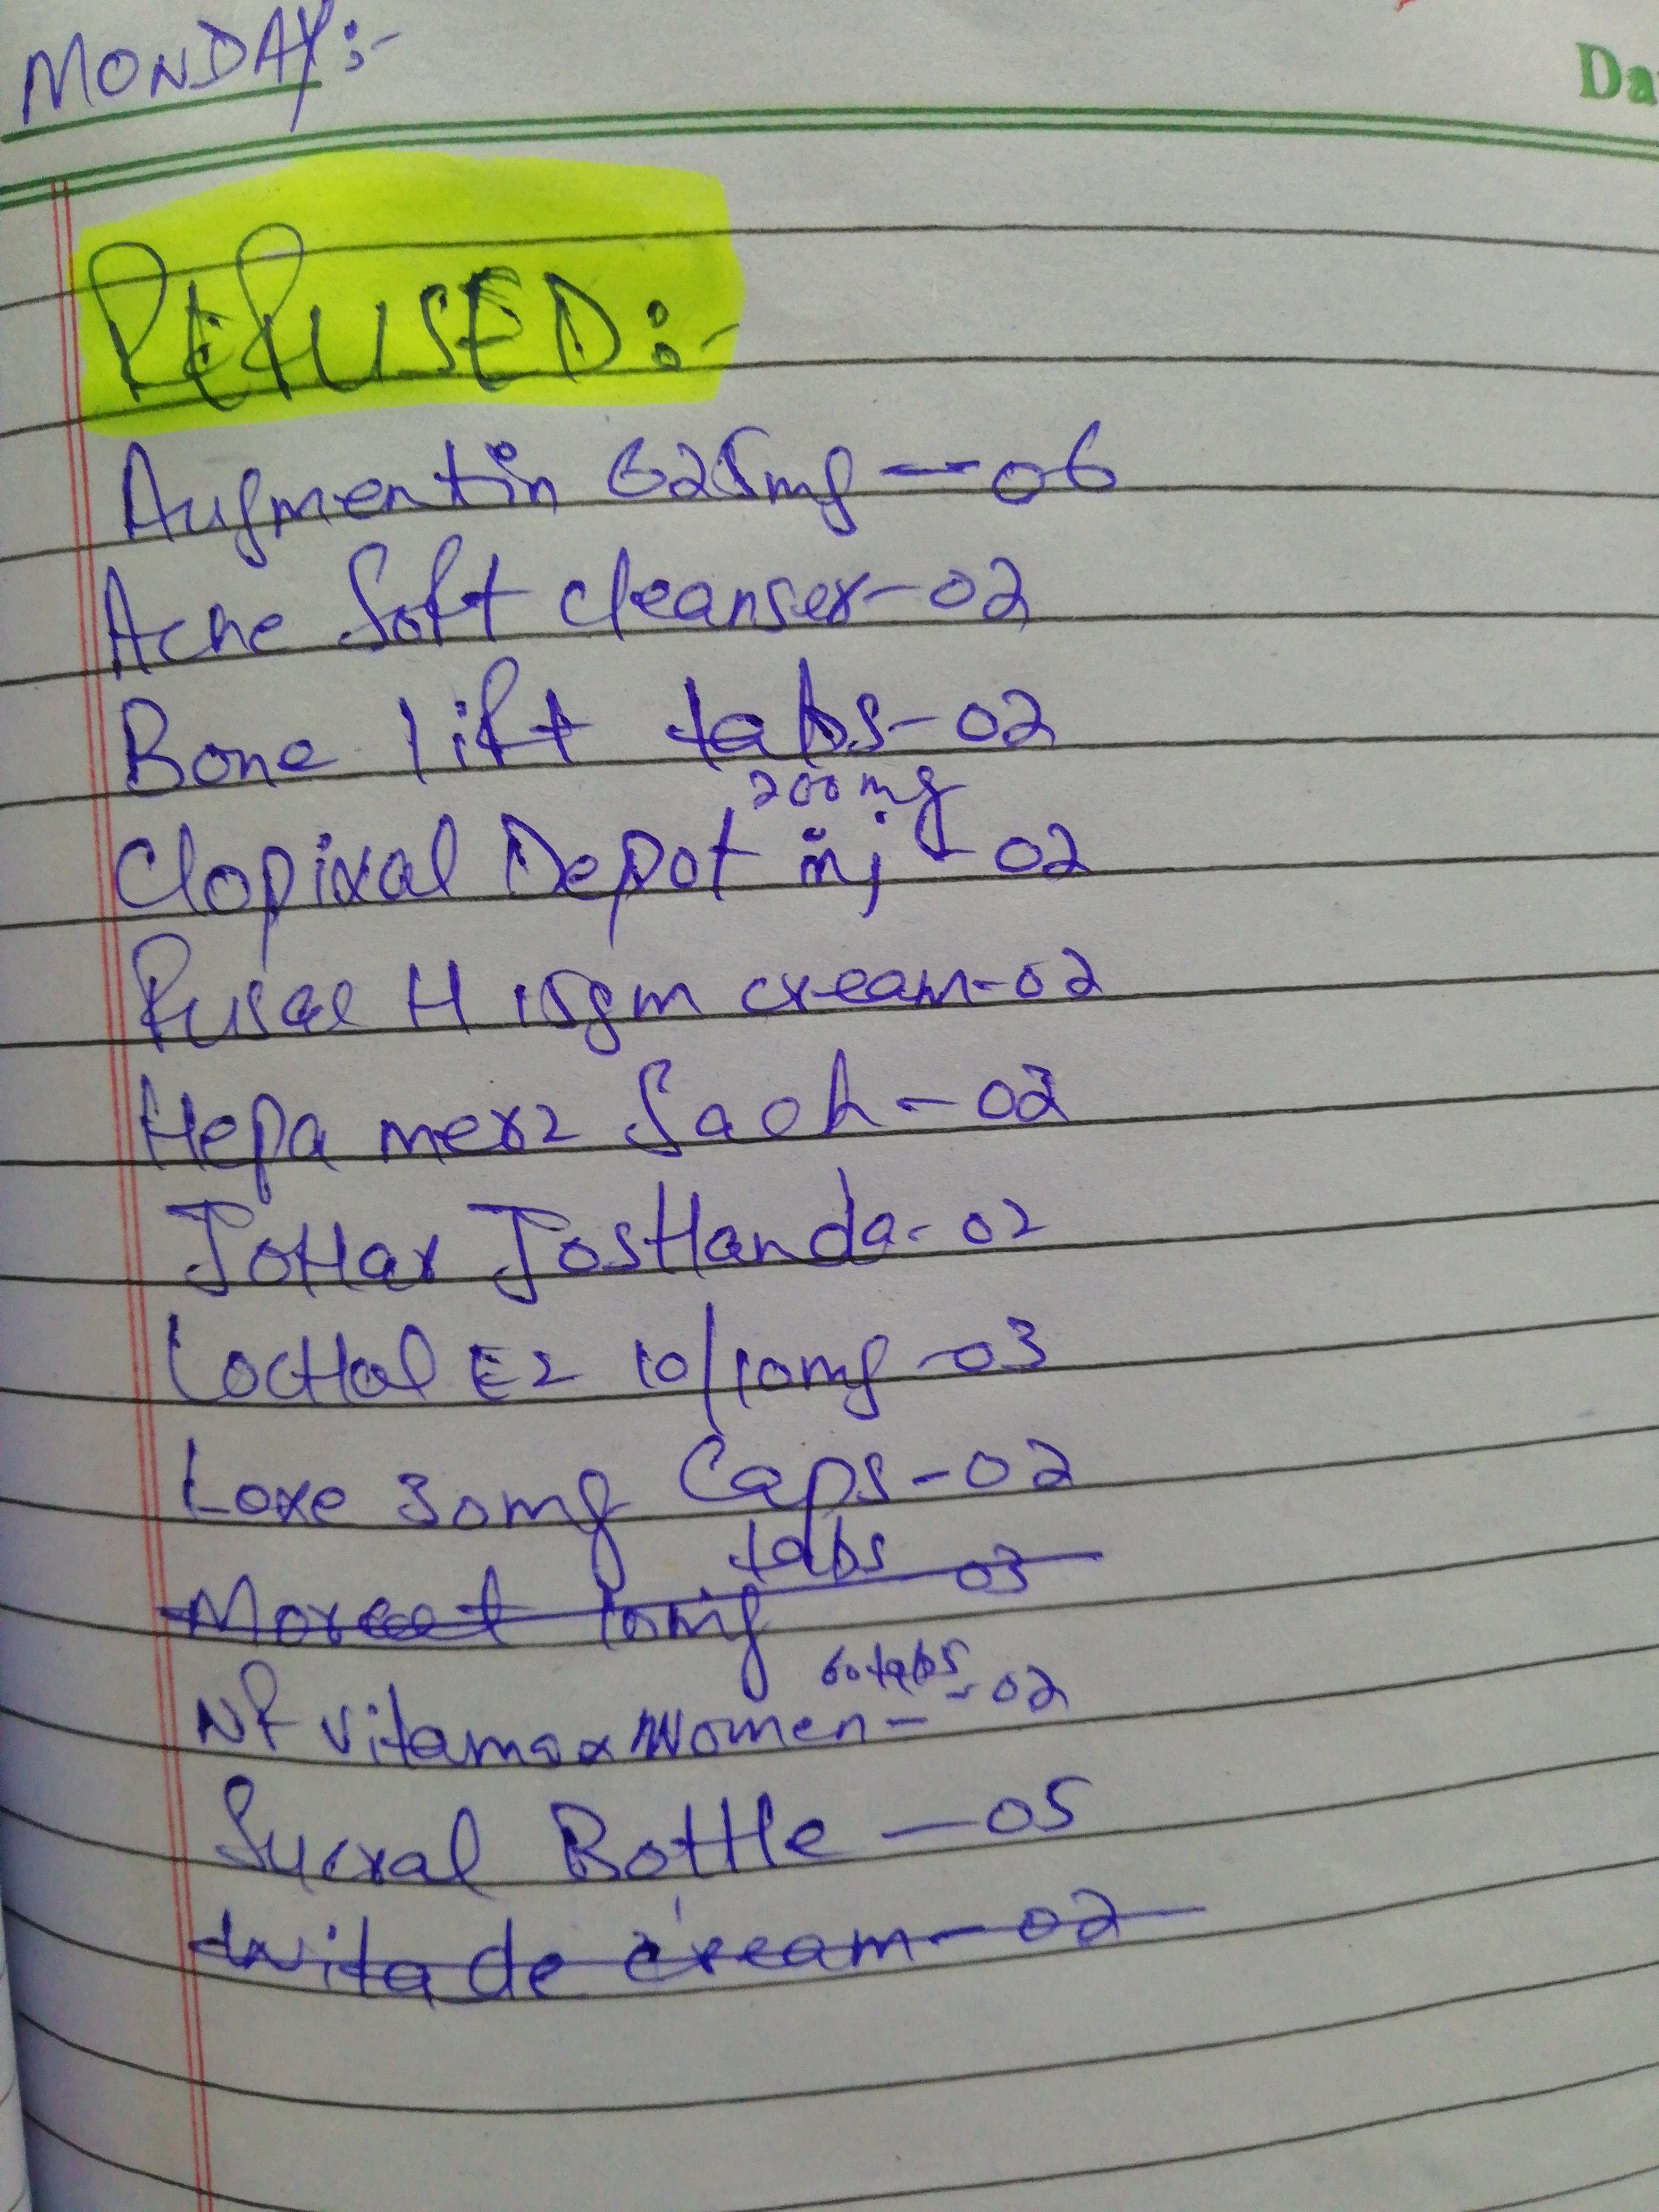 MONDAY:-
Da
REFUSED:-
Augmentin 625mg — 06
Acne Soft cleanser - 02
Bone lift tabs - 02
200mg
Clopixal Depot inj - 02
H 15gm cream - 02
Hepa merz Sach - 03
JoHar JosHanda - 02
LocHol EZ 10/10mg - 03
Loxe 30mg Caps - 02
tabs
10mg 03
60 tabs
NF vitamax Women - - 02
Sucral Bottle — 05
de cream - 02